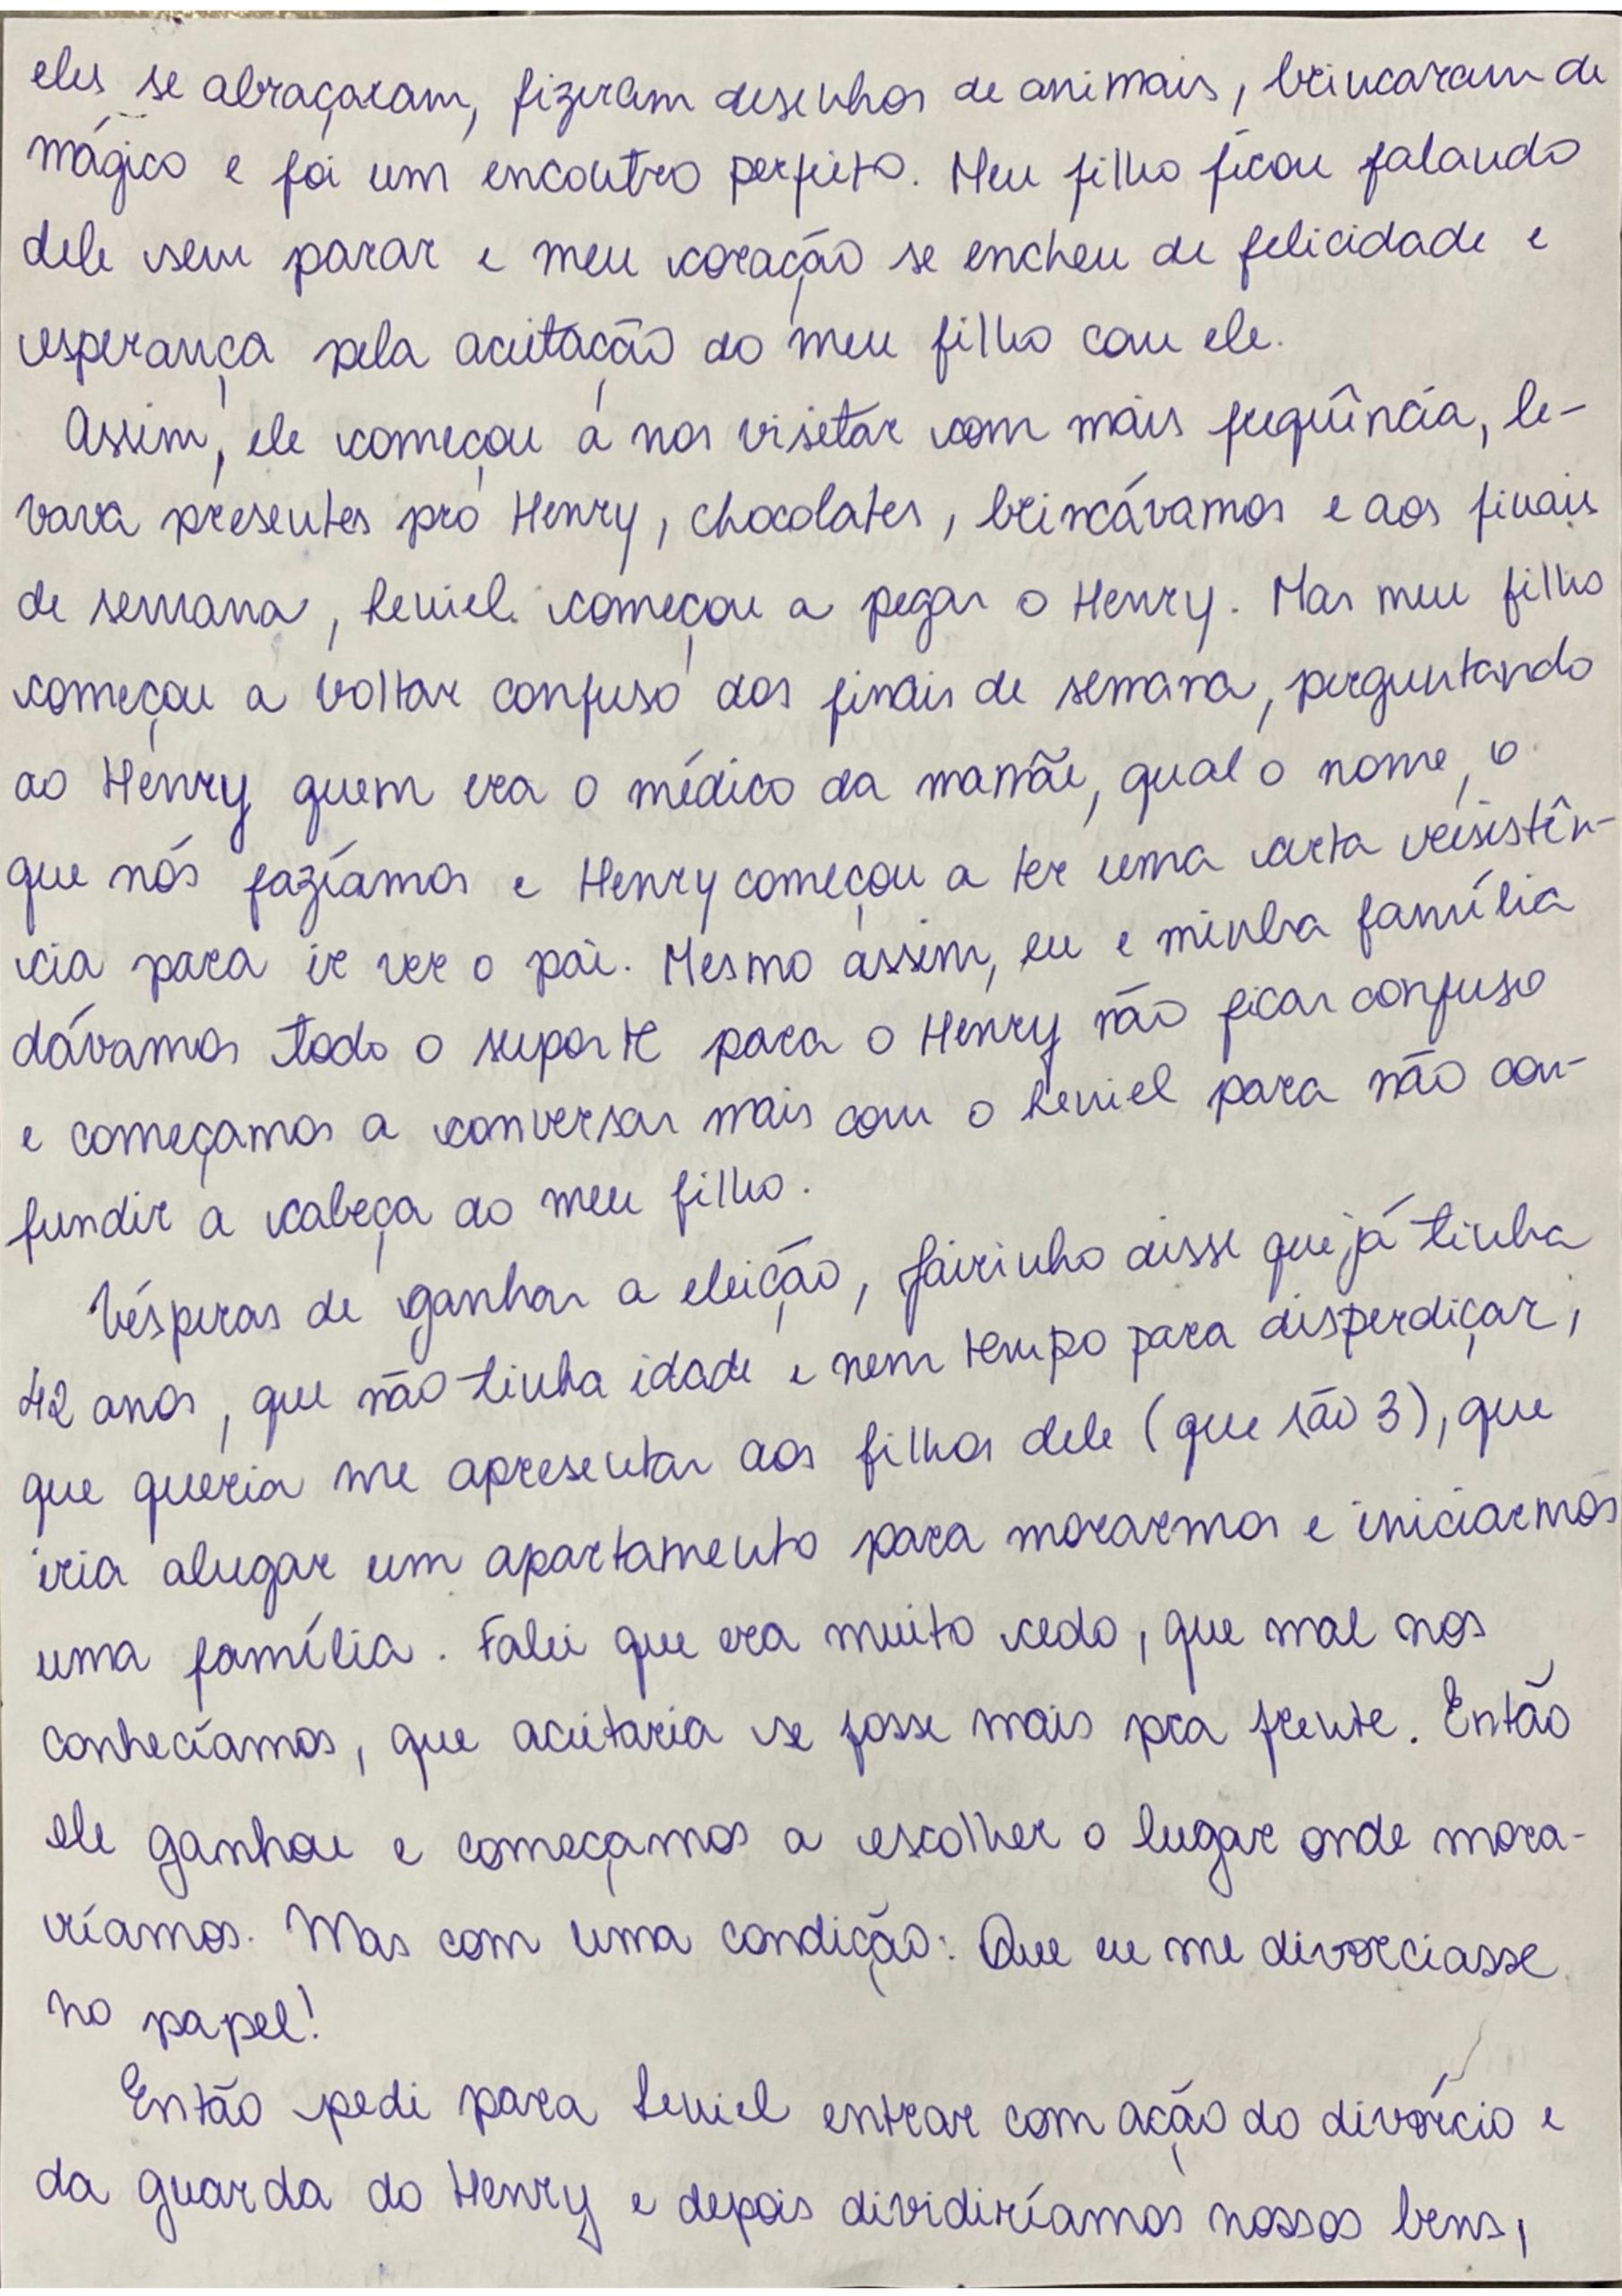 eles se abraçaram, fizeram desenhos de animais, brincaram de
mágico e foi um encontro perfeito. Meu filho ficou falando
dele sem parar e meu coração se encheu de felicidade e
esperança pela aceitação do meu filho com ele.
Assim, ele começou a nos visitar com mais freqüência, le-
vava presentes pro Henry, chocolates, brincávamos e aos finais
de semana, Leniel começou a pegar o Henry. Mas meu filho
começou a voltar confuso dos finais de semana, perguntando
ao Henry quem era o médico da mamãe, qual o nome, o
que nós fazíamos e Henry começou a ter uma certa resistên-
cia para ir ver o pai. Mesmo assim, eu e minha família
dávamos todo o suporte para o Henry não ficar confuso
e começamos a conversar mais com o Leniel para não con-
fundir a cabeça do meu filho.
Vésperas de ganhar a eleição, Jairinho disse que já tinha
42 anos, que não tinha idade e nem tempo para disperdiçar,
que queria me apresentar aos filhos dele (que são 3), que
iria alugar um apartamento para morarmos e iniciarmos
uma família. Falei que era muito cedo, que mal nos
conhecíamos, que aceitaria se fosse mais pra frente. Então
ele ganhou e começamos a escolher o lugar onde mora-
ríamos. Mas com uma condição: Que eu me divorciasse
no papel!
Então pedi para Leniel entrar com ação do divórcio e
da guarda do Henry e depois dividiríamos nossos bens,